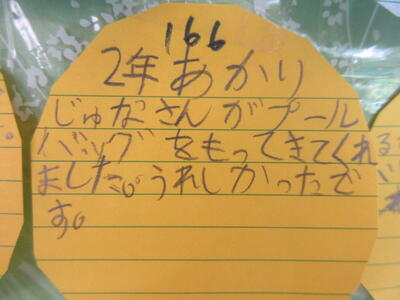 166
2年あかり
じゅなさんがプール
バッグをもってきてくれ
ました。うれしかったで
す。